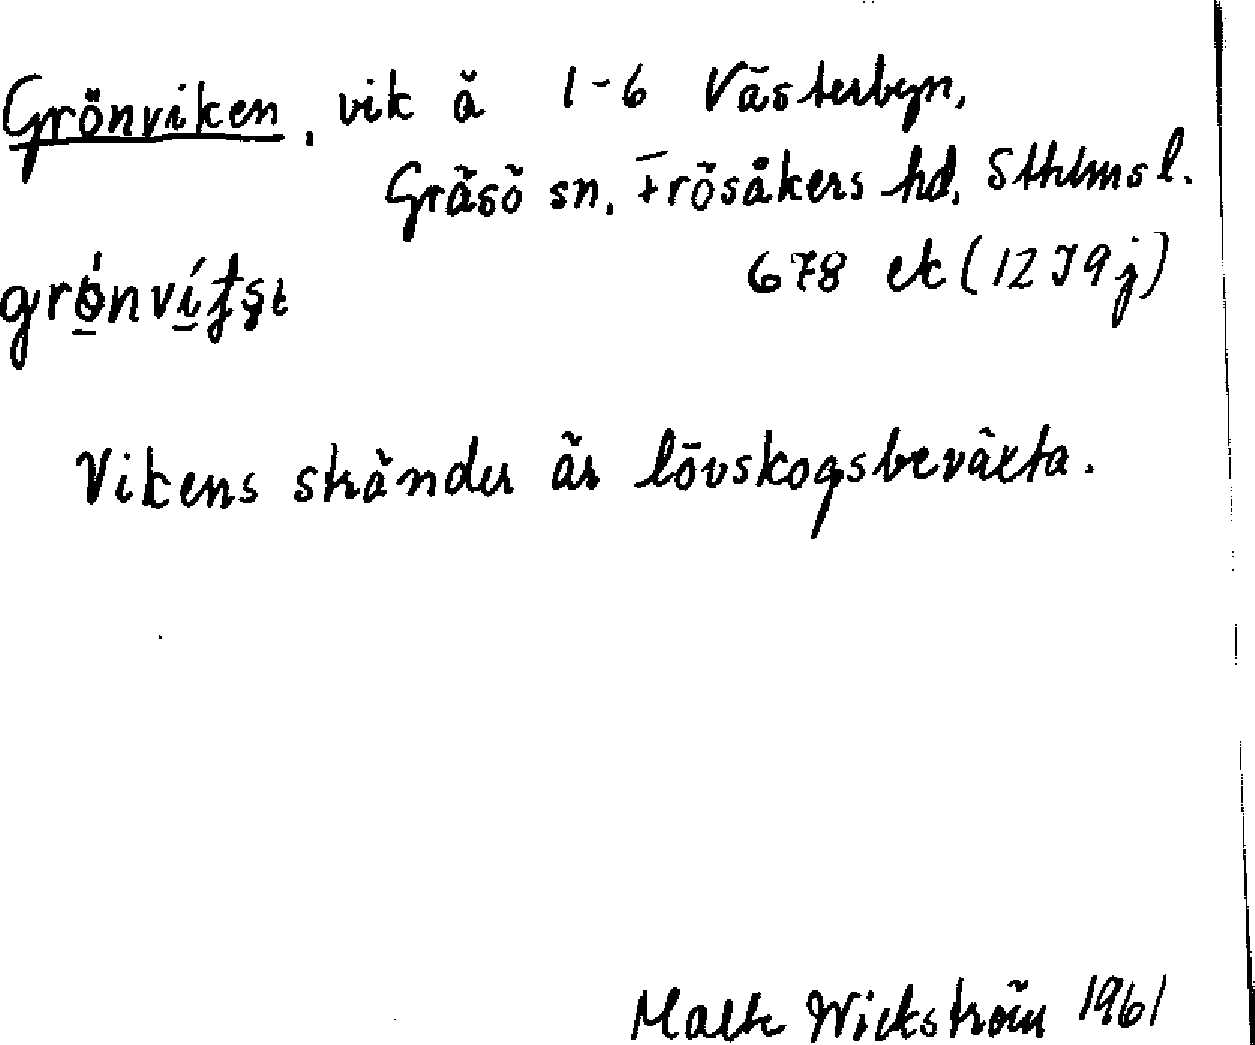 Grönviken, vik å 1-6 Västerbyn,
Gräsö sn, Frösåkers hd, Sthlms l.
678 ek (12 I 9 j)
Vikens stränder är lövskogsbeväxta.
Malte Wickström 1961